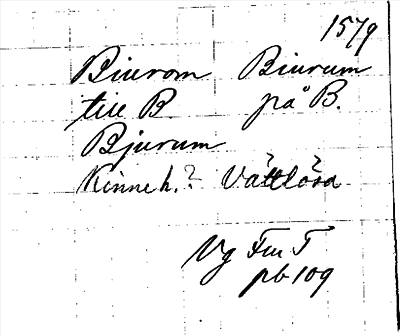 1579
Biurom Biurum
till B. på B.
Bjurum
Kinneh.? Vättlösa
Vg FmT
pb 109